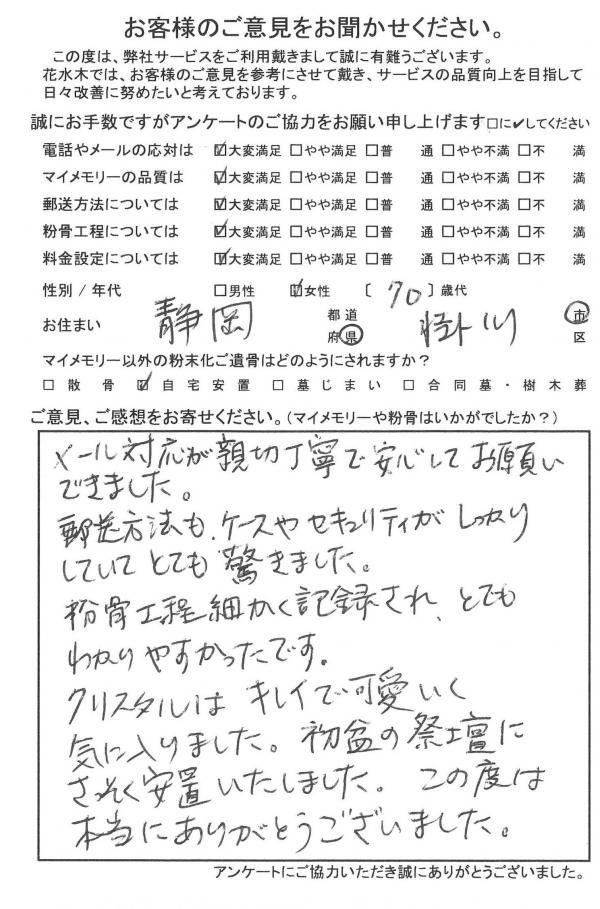 お客様のご意見をお聞かせください。
この度は、弊社サービスをご利用戴きまして誠に有難うございます。
花水木では、お客様のご意見を参考にさせて戴き、サービスの品質向上を目指して
日々改善に努めたいと考えております。
誠にお手数ですがアンケートのご協力をお願い申し上げます□に✔してください
電話やメールの応対は ☑大変満足 □やや満足 □普 通 □やや不満 □不 満
マイメモリーの品質は ☑大変満足 □やや満足 □普 通 □やや不満 □不 満
郵送方法については ☑大変満足 □やや満足 □普 通 □やや不満 □不 満
粉骨工程については ☑大変満足 □やや満足 □普 通 □やや不満 □不 満
料金設定については ☑大変満足 □やや満足 □普 通 □やや不満 □不 満
性別 / 年代 □男性 ☑女性 〔 70 〕歳代
お住まい 静岡 都道府県 掛川 市区
マイメモリー以外の粉末化ご遺骨はどのようにされますか？
□散骨 ☑自宅安置 □墓じまい □合同墓・樹木葬
ご意見、ご感想をお寄せください。（マイメモリーや粉骨はいかがでしたか？）
メール対応が親切丁寧で安心してお願い
できました。
郵送方法も、ケースやセキュリティがしっかり
していてとても驚きました。
粉骨工程細かく記録され、とても
わかりやすかったです。
クリスタルはキレイで可愛いく
気に入りました。初盆の祭壇に
さっそく安置いたしました。この度は
本当にありがとうございました。
アンケートにご協力いただき誠にありがとうございました。